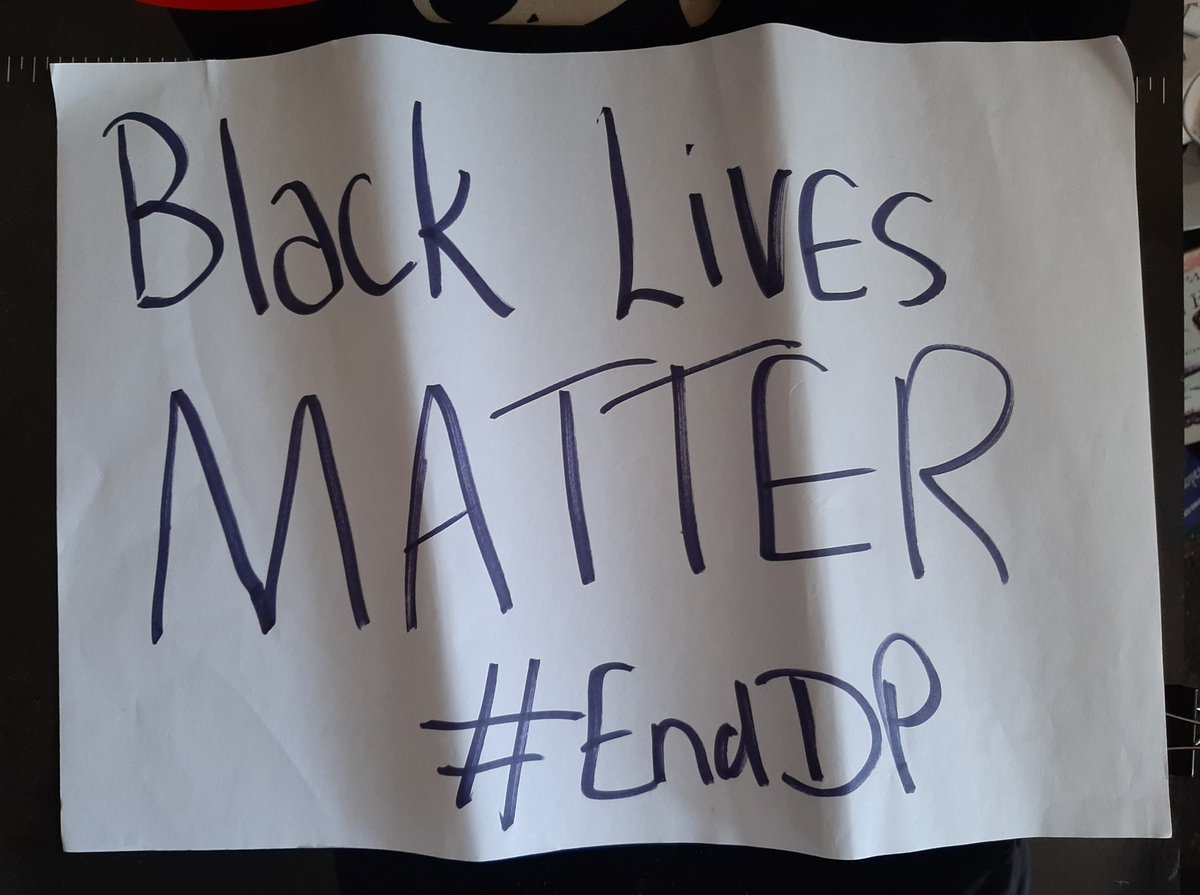 Black LivES
MATTER
#EndDP